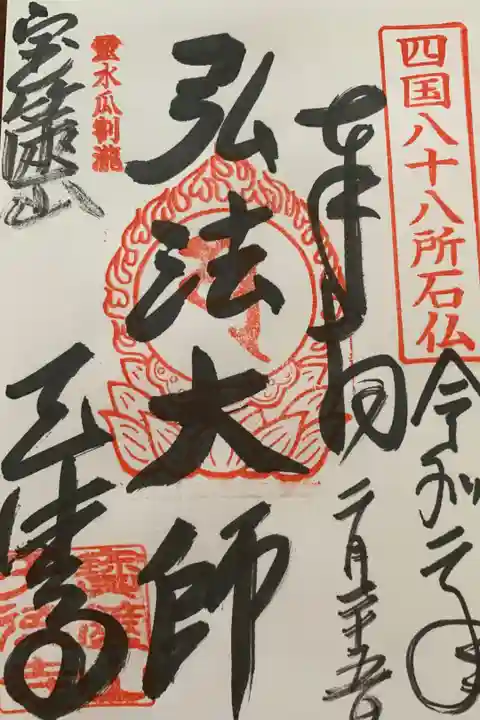 四国八十八所石仏
奉拝
令和二年
二月二十五日
弘法大師
霊水瓜割瀧
宝篋山
天徳寺